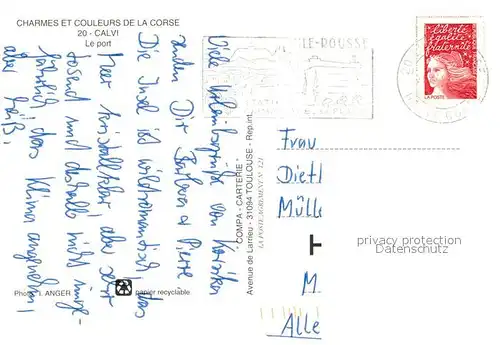 CHARMES ET COULEURS DE LA CORSE
20 - CALVI
Le port
Viele Urlaubsgrüße von Korsika
senden Dir Barbara + Pierre.
Die Insel ist wildromantisch, das
Meer kristallklar aber sehr
tosend und deshalb nicht unge-
fährlich, das Klima angenehm
aber heiß.
Photo : I. ANGER
papier recyclable
"COMPA - CARTERIE"
Avenue de Larrieu - 31094 TOULOUSE - Rep.int.
LA POSTE AGREMENT N° 121
ILE-ROUSSE
STATION
Liberté
égalité
fraternité
LA POSTE
Frau
Dietl
Mülle
M
Alle
privacy protection
Datenschutz